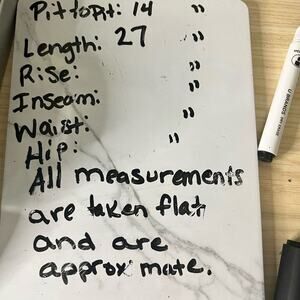 Pit to Pit: 14 "
Length: 27 "
Rise: "
Inseam: "
Waist: "
Hip: "
All measurements
are taken flat
and are
approximate.
U BRANDS